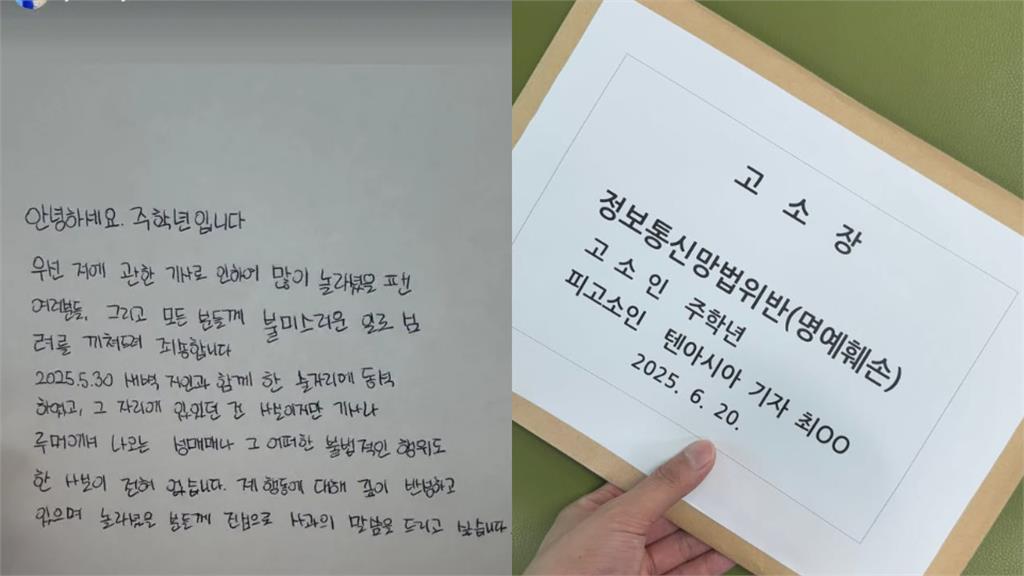 안녕하세요. 주학년입니다
우선 저에 관한 기사로 인하여 많이 놀라셨을 팬
여러분들, 그리고 모든 분들께 불미스러운 일로 심
려를 끼쳐드려 죄송합니다
2025.5.30 새벽 지인과 함께 한 술자리에 동석
하였고, 그 자리에 있었던 건 사실이지만 기사나
루머에서 나오는 성매매나 그 어떠한 불법적인 행위도
한 사실이 전혀 없습니다. 제 행동에 대해 깊이 반성하고
있으며 놀라셨을 분들께 진심으로 사과의 말씀을 드리고 싶습니다
고 소 장
정보통신망법위반(명예훼손)
고 소 인 주학년
피고소인 텐아시아 기자 최OO
2025. 6. 20.